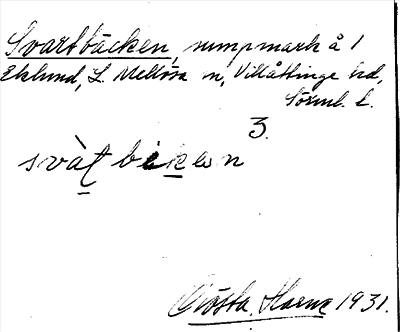 Svartbäcken, sumpmark å 1
Eklund, L. Mellösa sn, Villåttinge hd,
Sörml. l.
3.
svàt beken
Gösta Harne 1931.